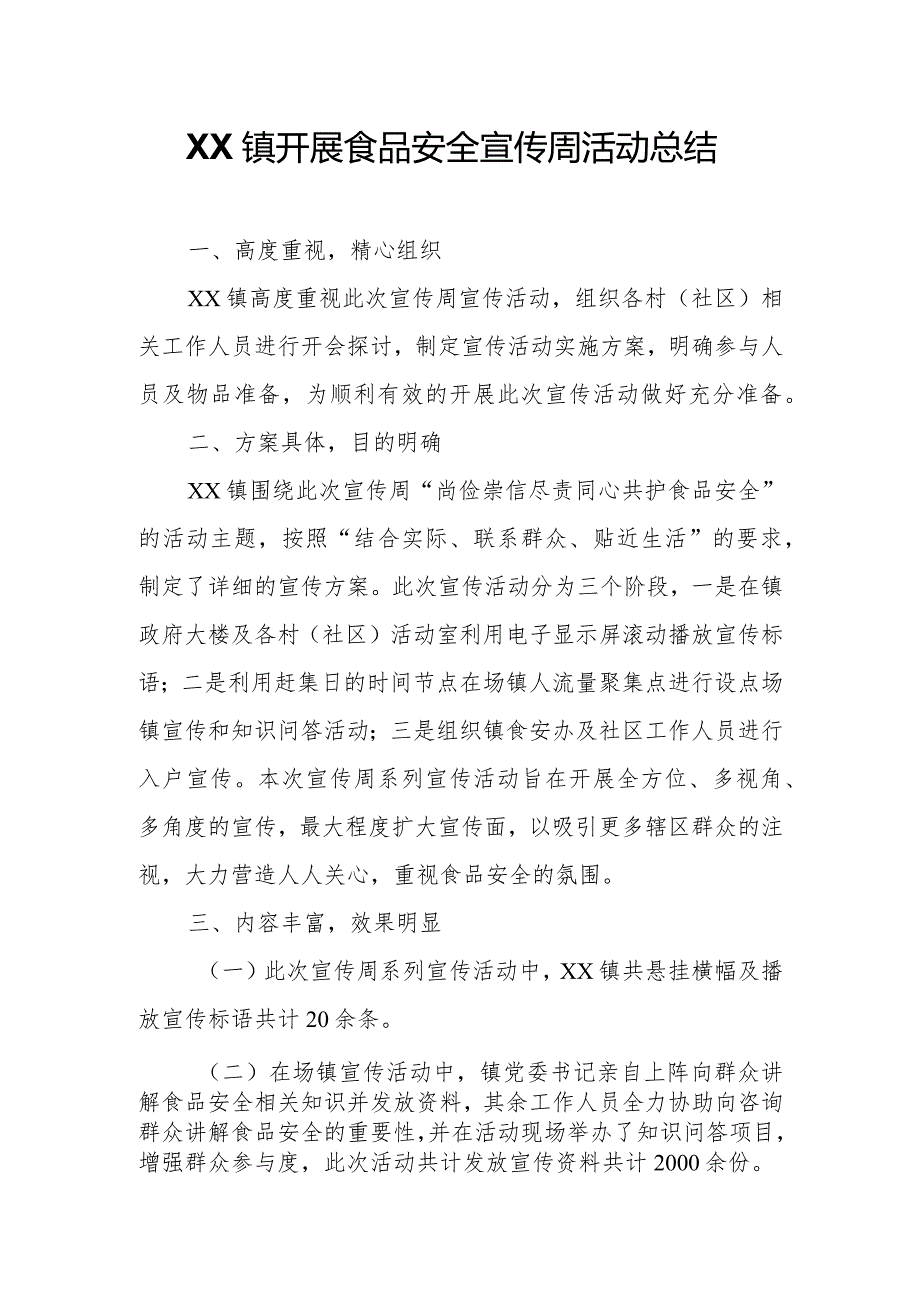 XX 镇开展食品安全宣传周活动总结
一、高度重视，精心组织
XX 镇高度重视此次宣传周宣传活动，组织各村（社区）相
关工作人员进行开会探讨，制定宣传活动实施方案，明确参与人
员及物品准备，为顺利有效的开展此次宣传活动做好充分准备。
二、方案具体，目的明确
XX 镇围绕此次宣传周“尚俭崇信尽责同心共护食品安全”
的活动主题，按照“结合实际、联系群众、贴近生活”的要求，
制定了详细的宣传方案。此次宣传活动分为三个阶段，一是在镇
政府大楼及各村（社区）活动室利用电子显示屏滚动播放宣传标
语；二是利用赶集日的时间节点在场镇人流量聚集点进行设点场
镇宣传和知识问答活动；三是组织镇食安办及社区工作人员进行
入户宣传。本次宣传周系列宣传活动旨在开展全方位、多视角、
多角度的宣传，最大程度扩大宣传面，以吸引更多辖区群众的注
视，大力营造人人关心，重视食品安全的氛围。
三、内容丰富，效果明显
（一）此次宣传周系列宣传活动中，XX 镇共悬挂横幅及播
放宣传标语共计 20 余条。
（二）在场镇宣传活动中，镇党委书记亲自上阵向群众讲
解食品安全相关知识并发放资料，其余工作人员全力协助向咨询
群众讲解食品安全的重要性，并在活动现场举办了知识问答项目，
增强群众参与度，此次活动共计发放宣传资料共计 2000 余份。